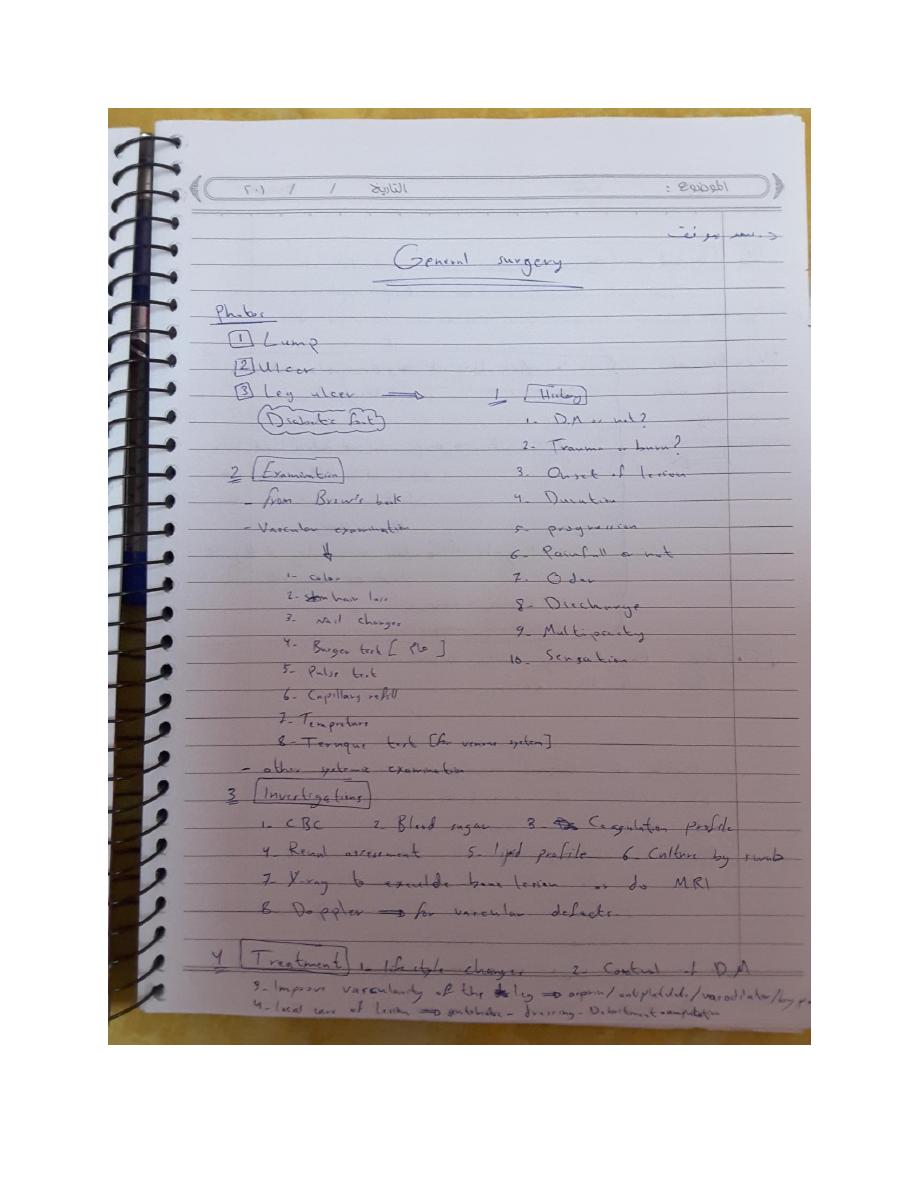 الموضوع : التاريخ / / ٢٠١
د. سعد
General surgery
Photos
1 Lump
2 Ulcer
3 Leg ulcer ⇒
Diabetic foot
1 History
1. D.M or not?
2. Trauma or burn?
3. Onset of lesion
4. Duration
5. progression
6. Painfull or not
7. Odor
8. Discharge
9. Multip
10. Sensation
2 Examination
- from Brows's book
- Vascular examination
↓
1- Color
2- hair loss
3. Nail changes
4. Burger test [ هام ]
5- Pulse test
6- Capillary refill
7- Tempreture
8- Ternque test [for venous system]
- other systemic examination
3 Investigations
1. CBC 2. Blood sugar 3. Coagulation profile
4. Renal assessment 5. lipid profile 6. Culture by swab
7. X-ray to exculde bone lesion or do MRI
8. Doppler ⇒ for vascular defects
4 Treatment 1- life style changes 2. Control of D.M
3- Improve vascularity of the leg ⇒ aspirin/antiplatelate/vasodilator/by p
4- local care of lesion ⇒ antibiotic - dressing - Debritment - amputation